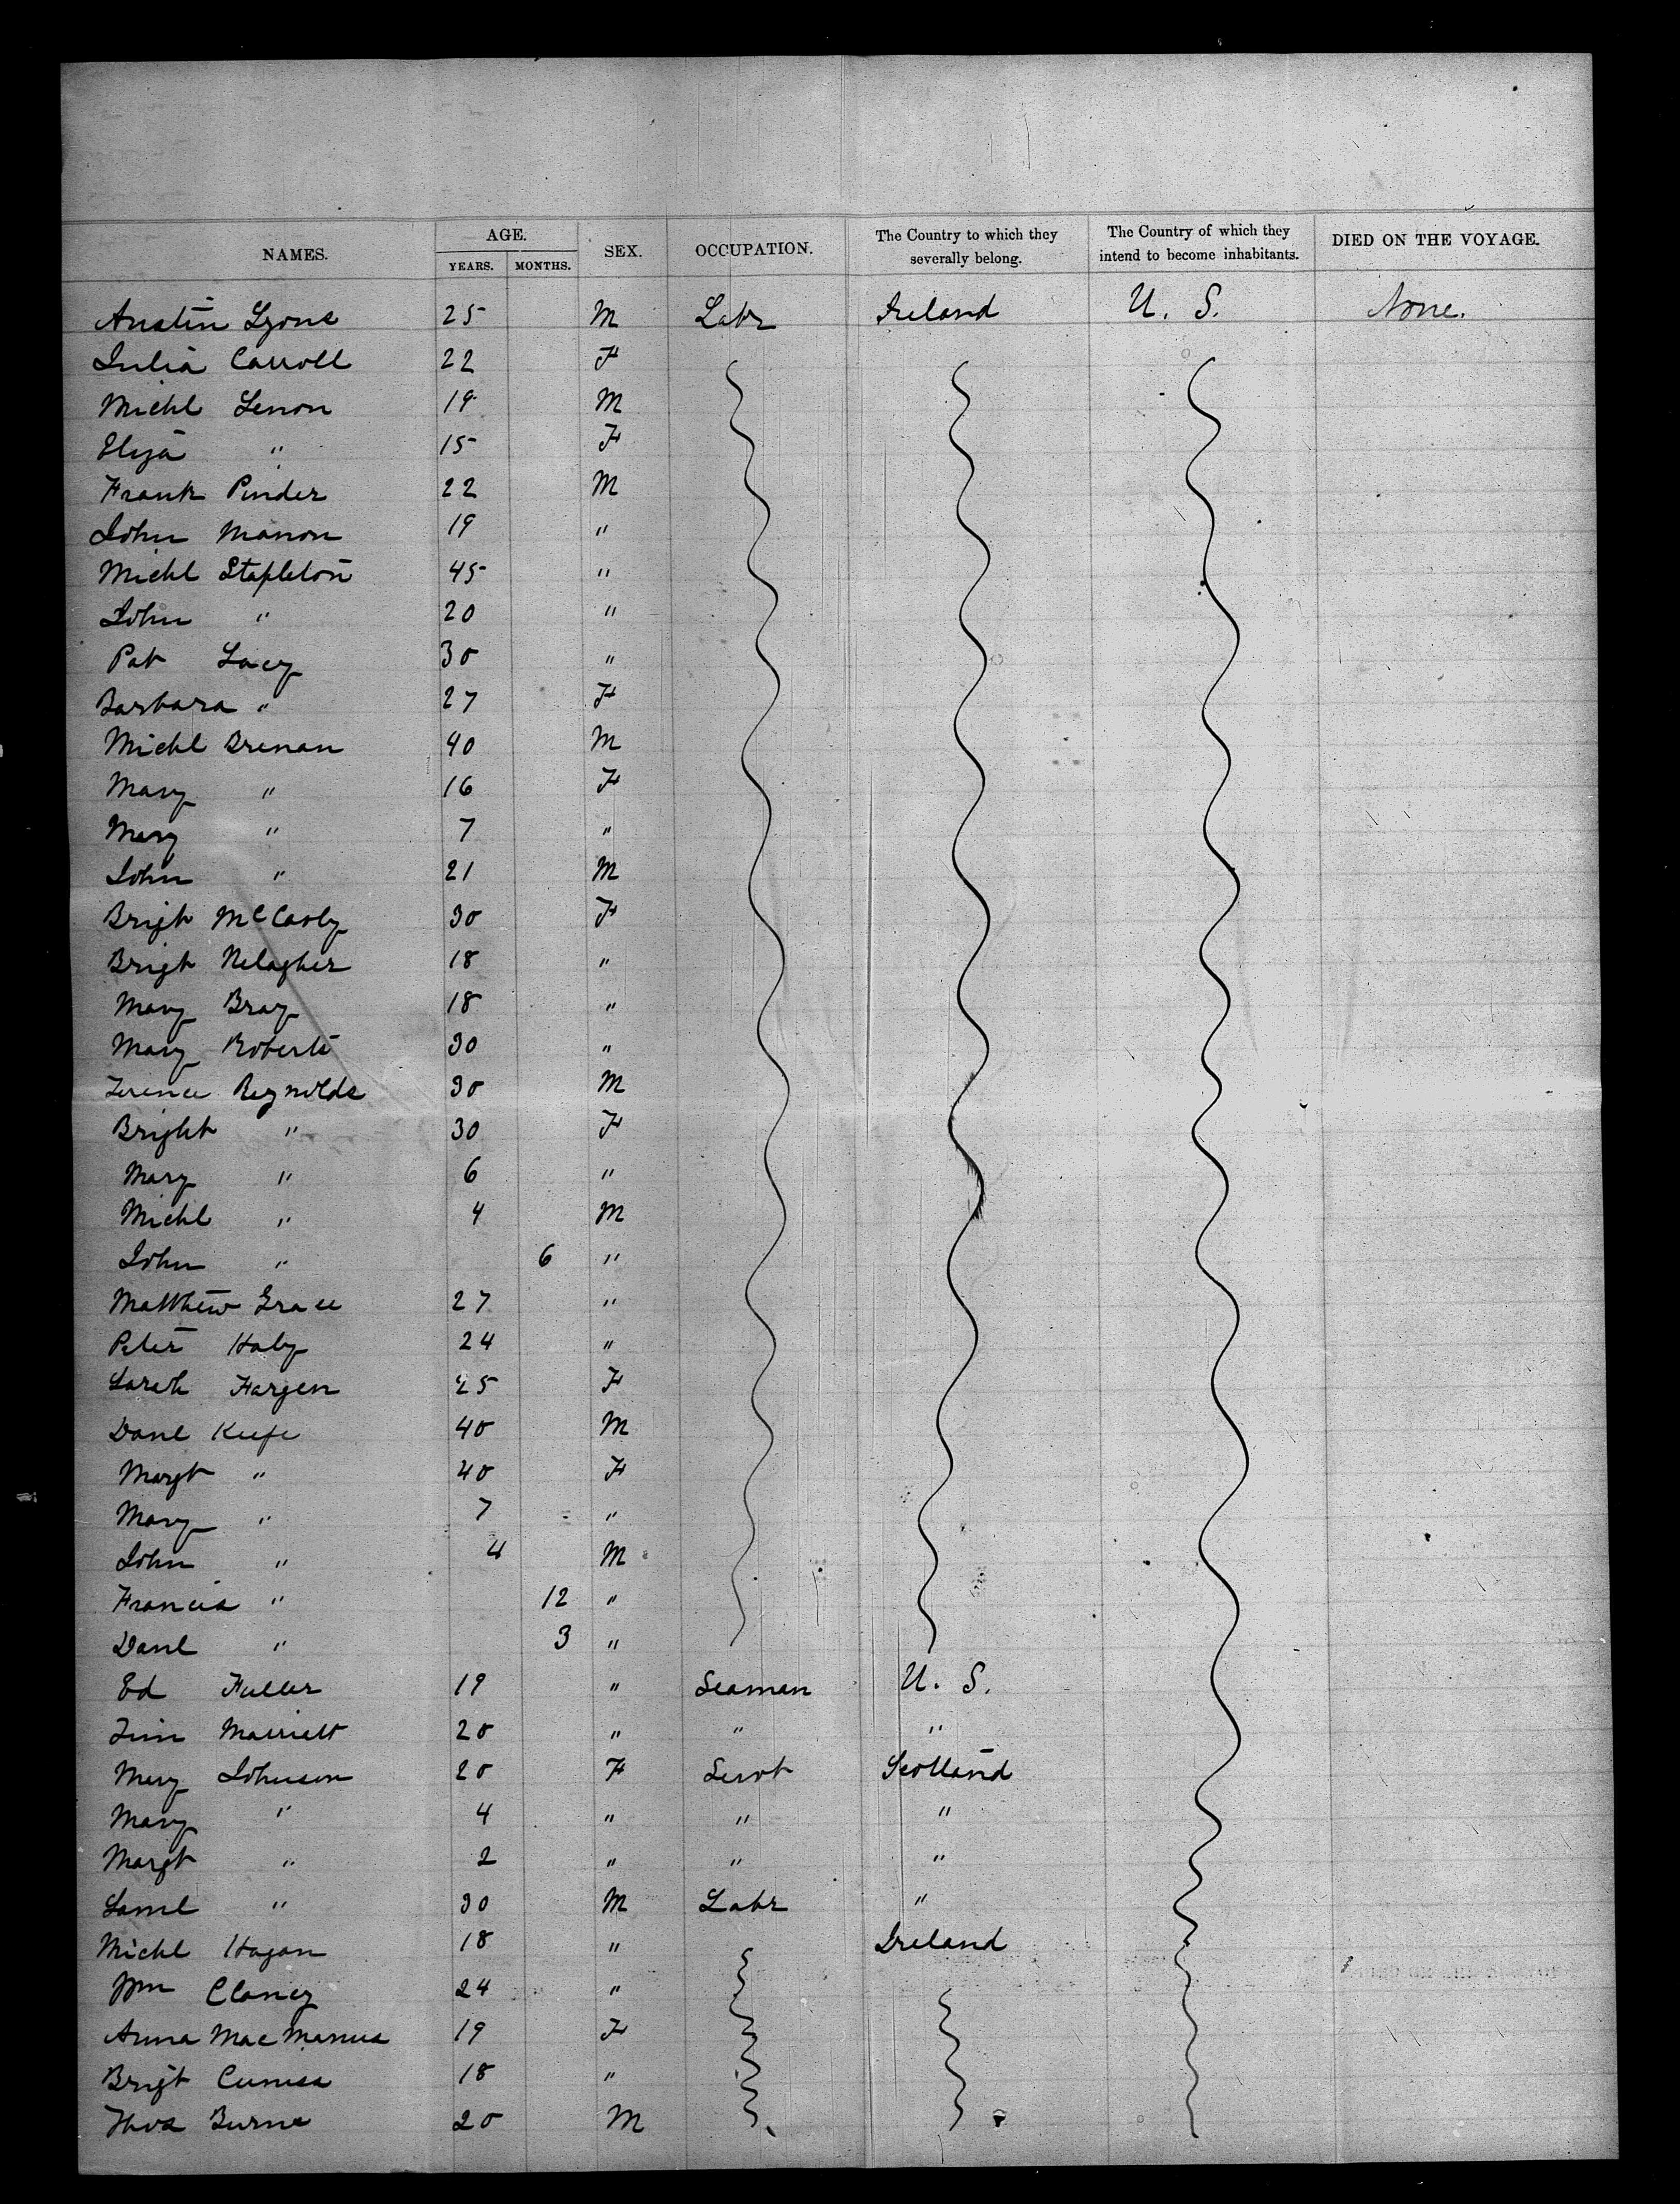 NAMES. AGE. YEARS. MONTHS. SEX. OCCUPATION. The Country to which they severally belong. The Country of which they intend to become inhabitants. DIED ON THE VOYAGE.
Austin Lyons 25 M Labr Ireland U. S. None.
Julia Carroll 22 F
Michl Lenon 19 M
Eliza " 15 F
Frank Pinder 22 M
John Manon 19 "
Michl Stapleton 45 "
John " 20 "
Pat Lacy 30 "
Barbara " 27 F
Michl Brenan 40 M
Mary " 16 F
Mary " 7 "
John " 21 M
Brigt McCarty 30 F
Brigt Nelagher 18 "
Mary Bray 18 "
Mary Roberts 30 "
Terence Reynolds 30 M
Bright " 30 F
Mary " 6 "
Michl " 4 M
John " 6 "
Matthew Grace 27 "
Peter Haby 24 "
Sarah Fargen 25 F
Danl Keefe 40 M
Margt " 40 F
Mary " 7 "
John " 4 M
Francis " 12 "
Danl " 3 "
Ed Fuller 19 " Seaman U. S.
Jim Marriett 20 " " "
Mary Johnson 20 F Servt Scotland
Mary " 4 " " "
Margt " 2 " " "
Saml " 30 M Labr "
Michl Hagan 18 " Ireland
Wm Clancy 24 "
Anna MacManus 19 F
Brigt 18 "
Thos Burns 20 M